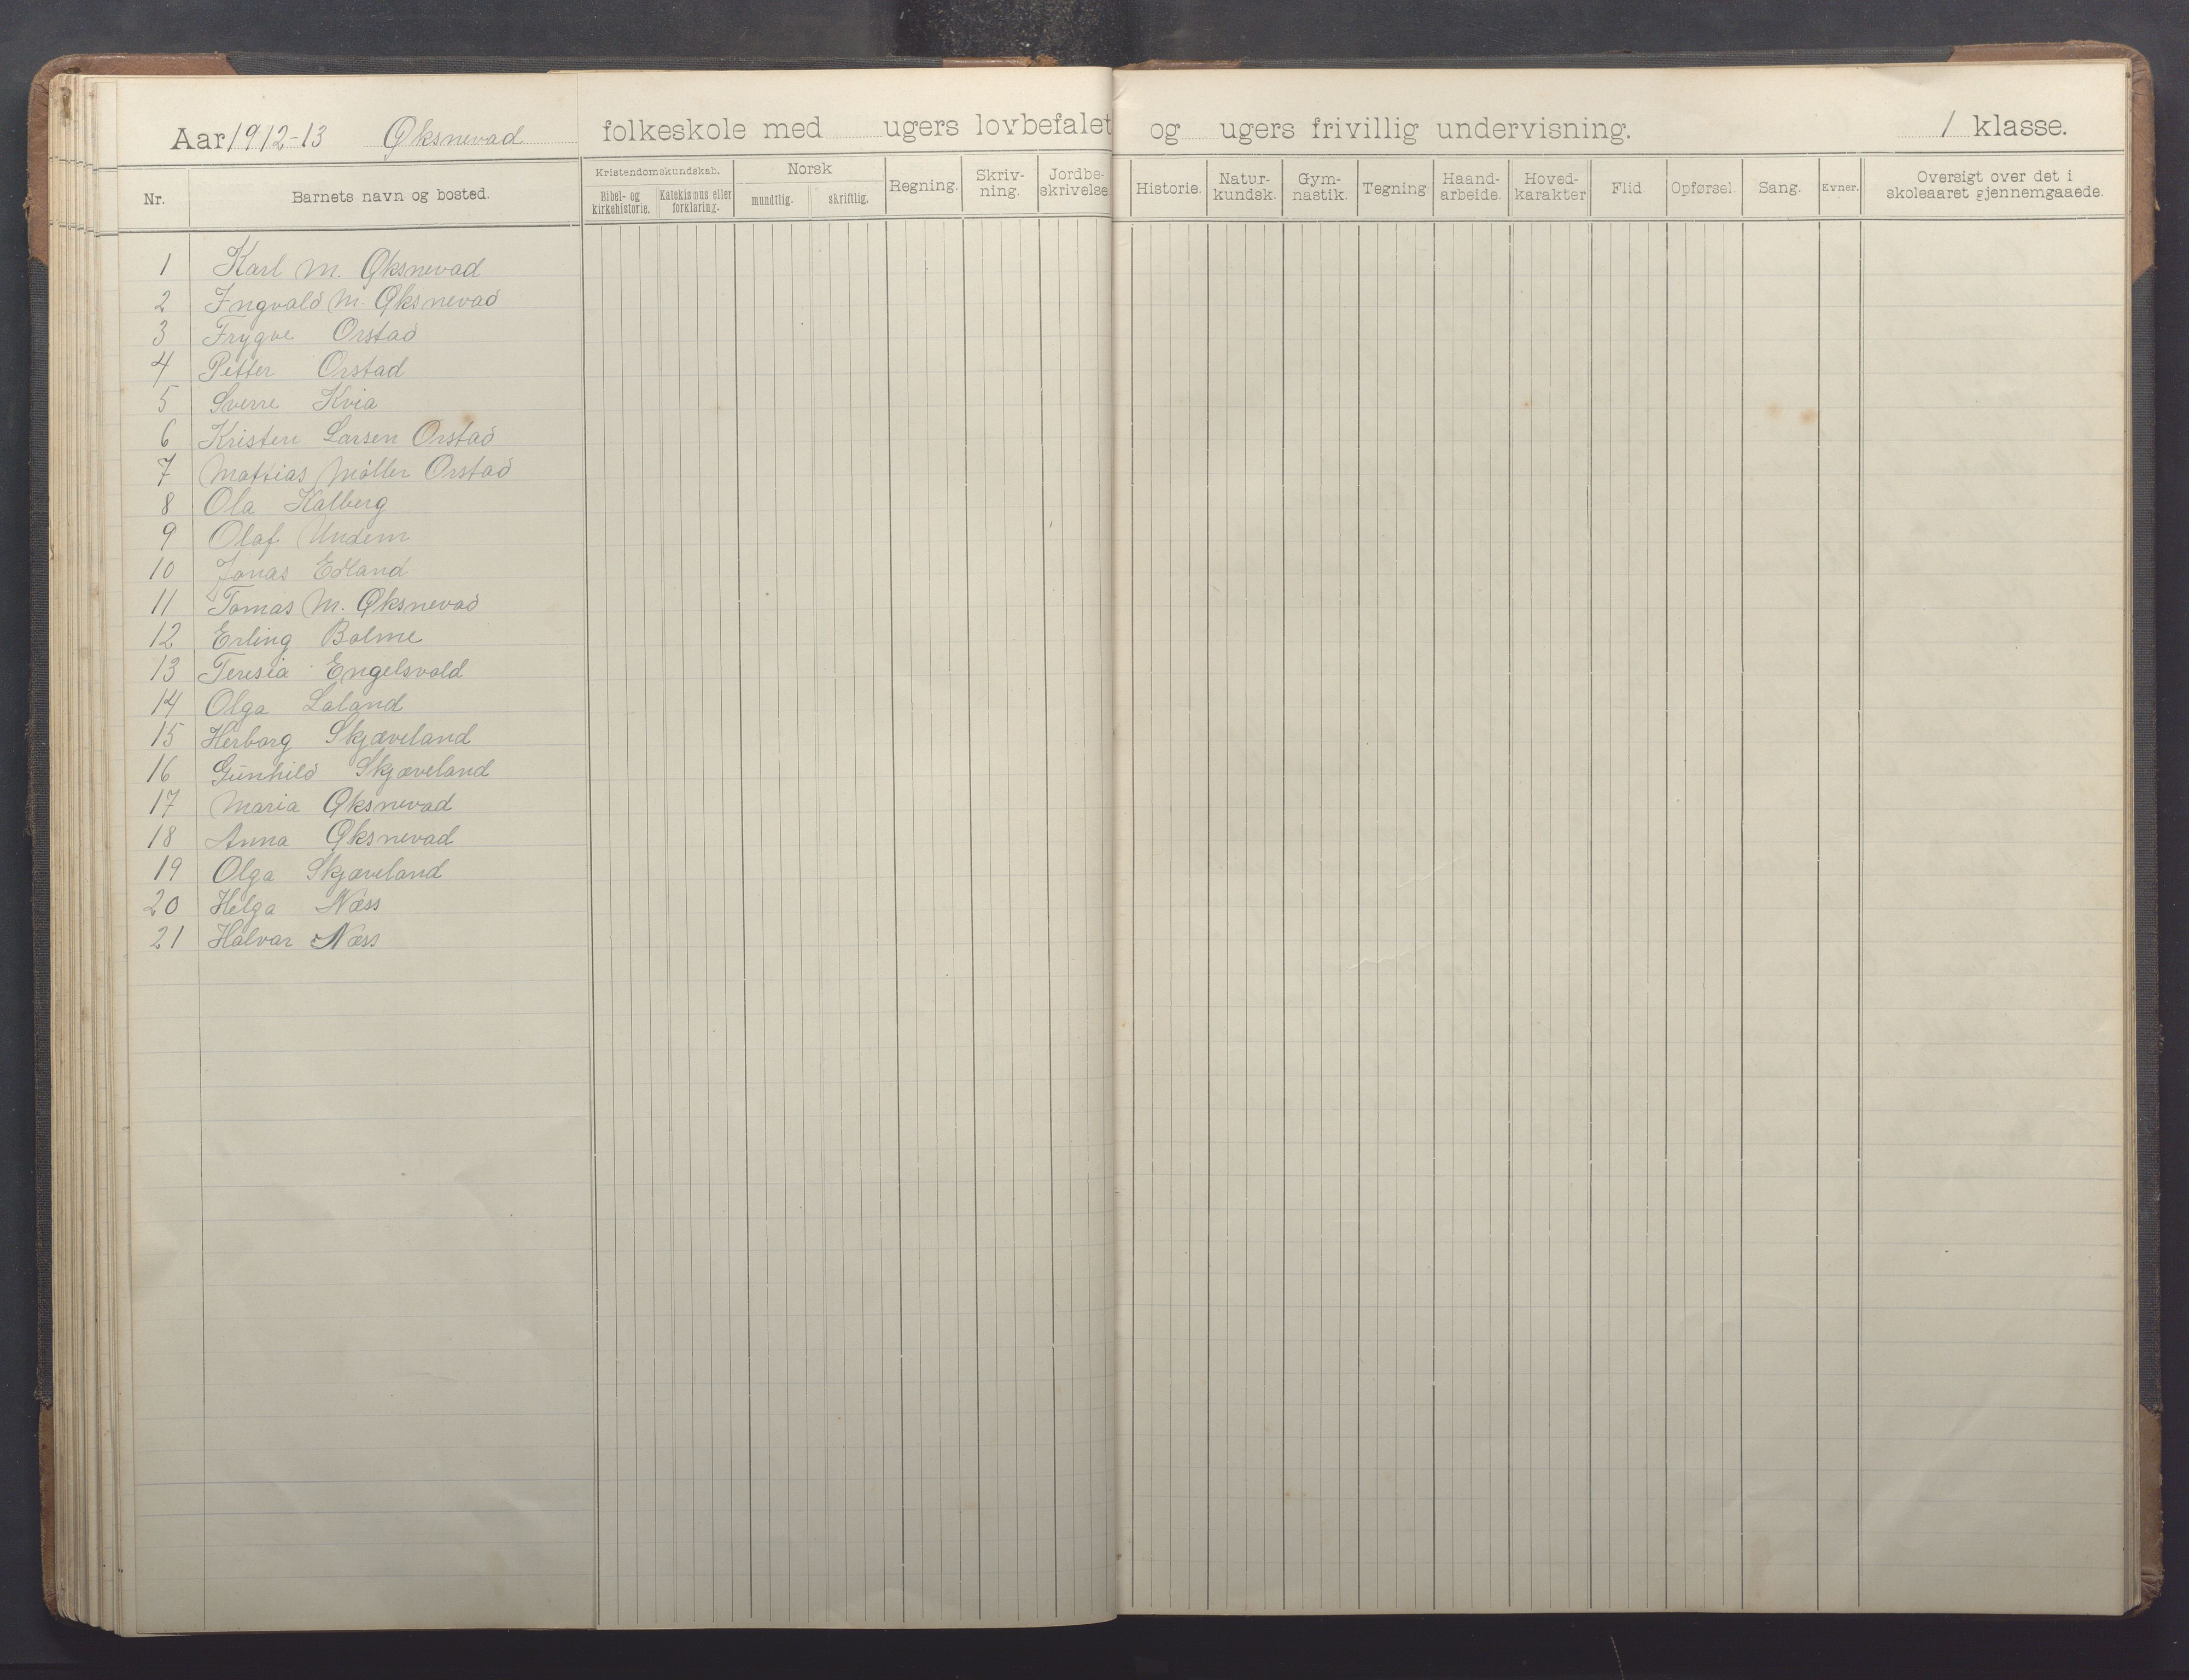 Aar 1912-13 Øksnevad folkeskole med ugers lovbefalet og ugers frivillig undervisning. 1 klasse.
Nr. Barnets navn og bosted. Kristendomskundskab. Bibel- og kirkehistorie. Katekismus eller forklaring. Norsk mundtlig. skriftlig. Regning. Skriv-ning. Jordbe-skrivelse Historie. Natur-kundsk. Gym-nastik. Tegning Haand-arbeide. Hoved-karakter Flid Opførsel. Sang. Evner. Oversigt over det i skoleaaret gjennemgaaede.
1 Karl M. Øksnevad
2 Ingvald M. Øksnevad
3 Trygve Orstad
4 Petter Orstad
5 Sverre Kvia
6 Kristen Larsen Orstad
7 Mattias Møller Orstad
8 Ola Kalberg
9 Olaf Undem
10 Jonas Edland
11 Tomas M. Øksnevad
12 Erling Bolme
13 Teresia Engelsvold
14 Olga Laland
15 Herborg Skjæveland
16 Gunhild Skjæveland
17 Maria Øksnevad
18 Anna Øksnevad
19 Olga Skjæveland
20 Helga Næss
21 Halvar Næss